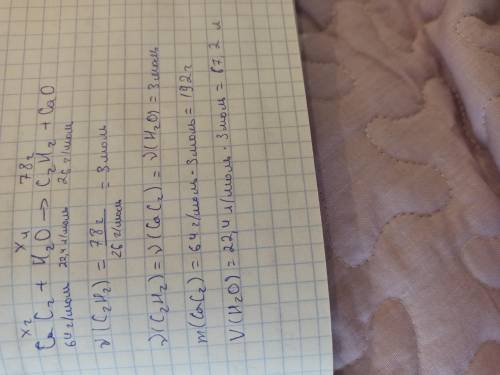 xг xл 78г
CaC₂ + H₂O → C₂H₂ + CaO
64 г/моль 22,4 л/моль 26 г/моль
ν(C₂H₂) = 78 г / 26 г/моль = 3 моль
ν(C₂H₂) = ν(CaC₂) = ν(H₂O) = 3 моль
m(CaC₂) = 64 г/моль · 3 моль = 192 г
V(H₂O) = 22,4 л/моль · 3 моль = 67,2 л